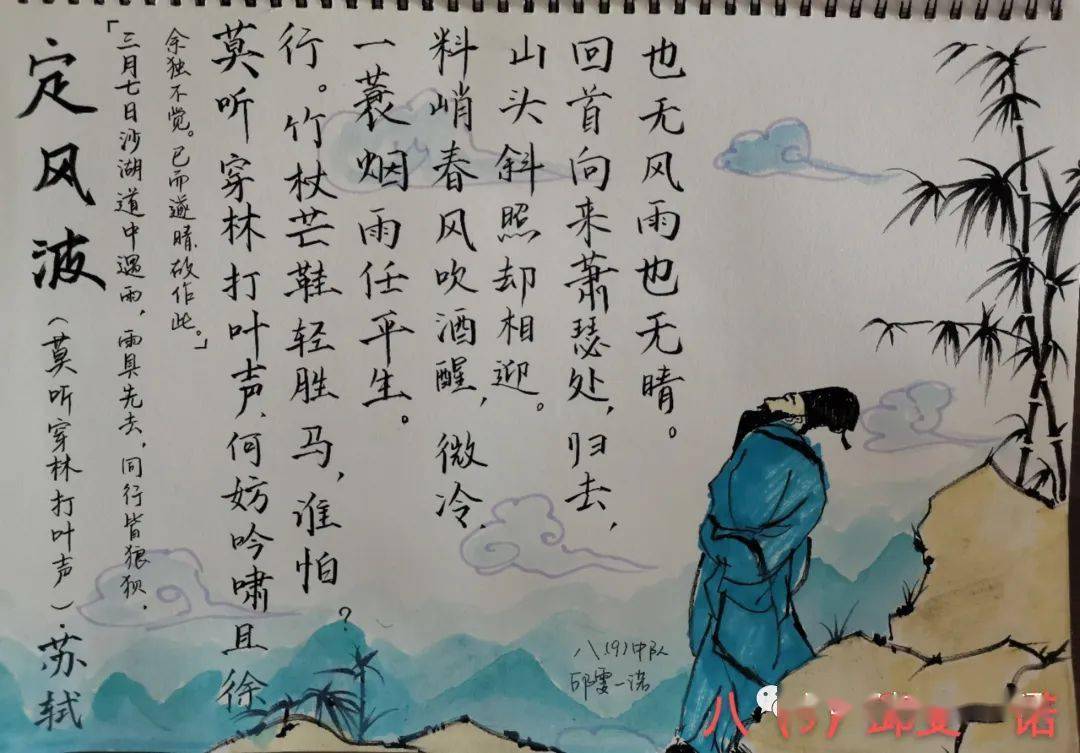 定风波（莫听穿林打叶声）·苏轼
「三月七日沙湖道中遇雨，雨具先去，同行皆狼狈，
余独不觉。已而遂晴，故作此。」
莫听穿林打叶声，何妨吟啸且徐
行。竹杖芒鞋轻胜马，谁怕？
一蓑烟雨任平生。
料峭春风吹酒醒，微冷，
山头斜照却相迎。
回首向来萧瑟处，归去，
也无风雨也无晴。
八(9)中队
邱雯一诺
八 诺